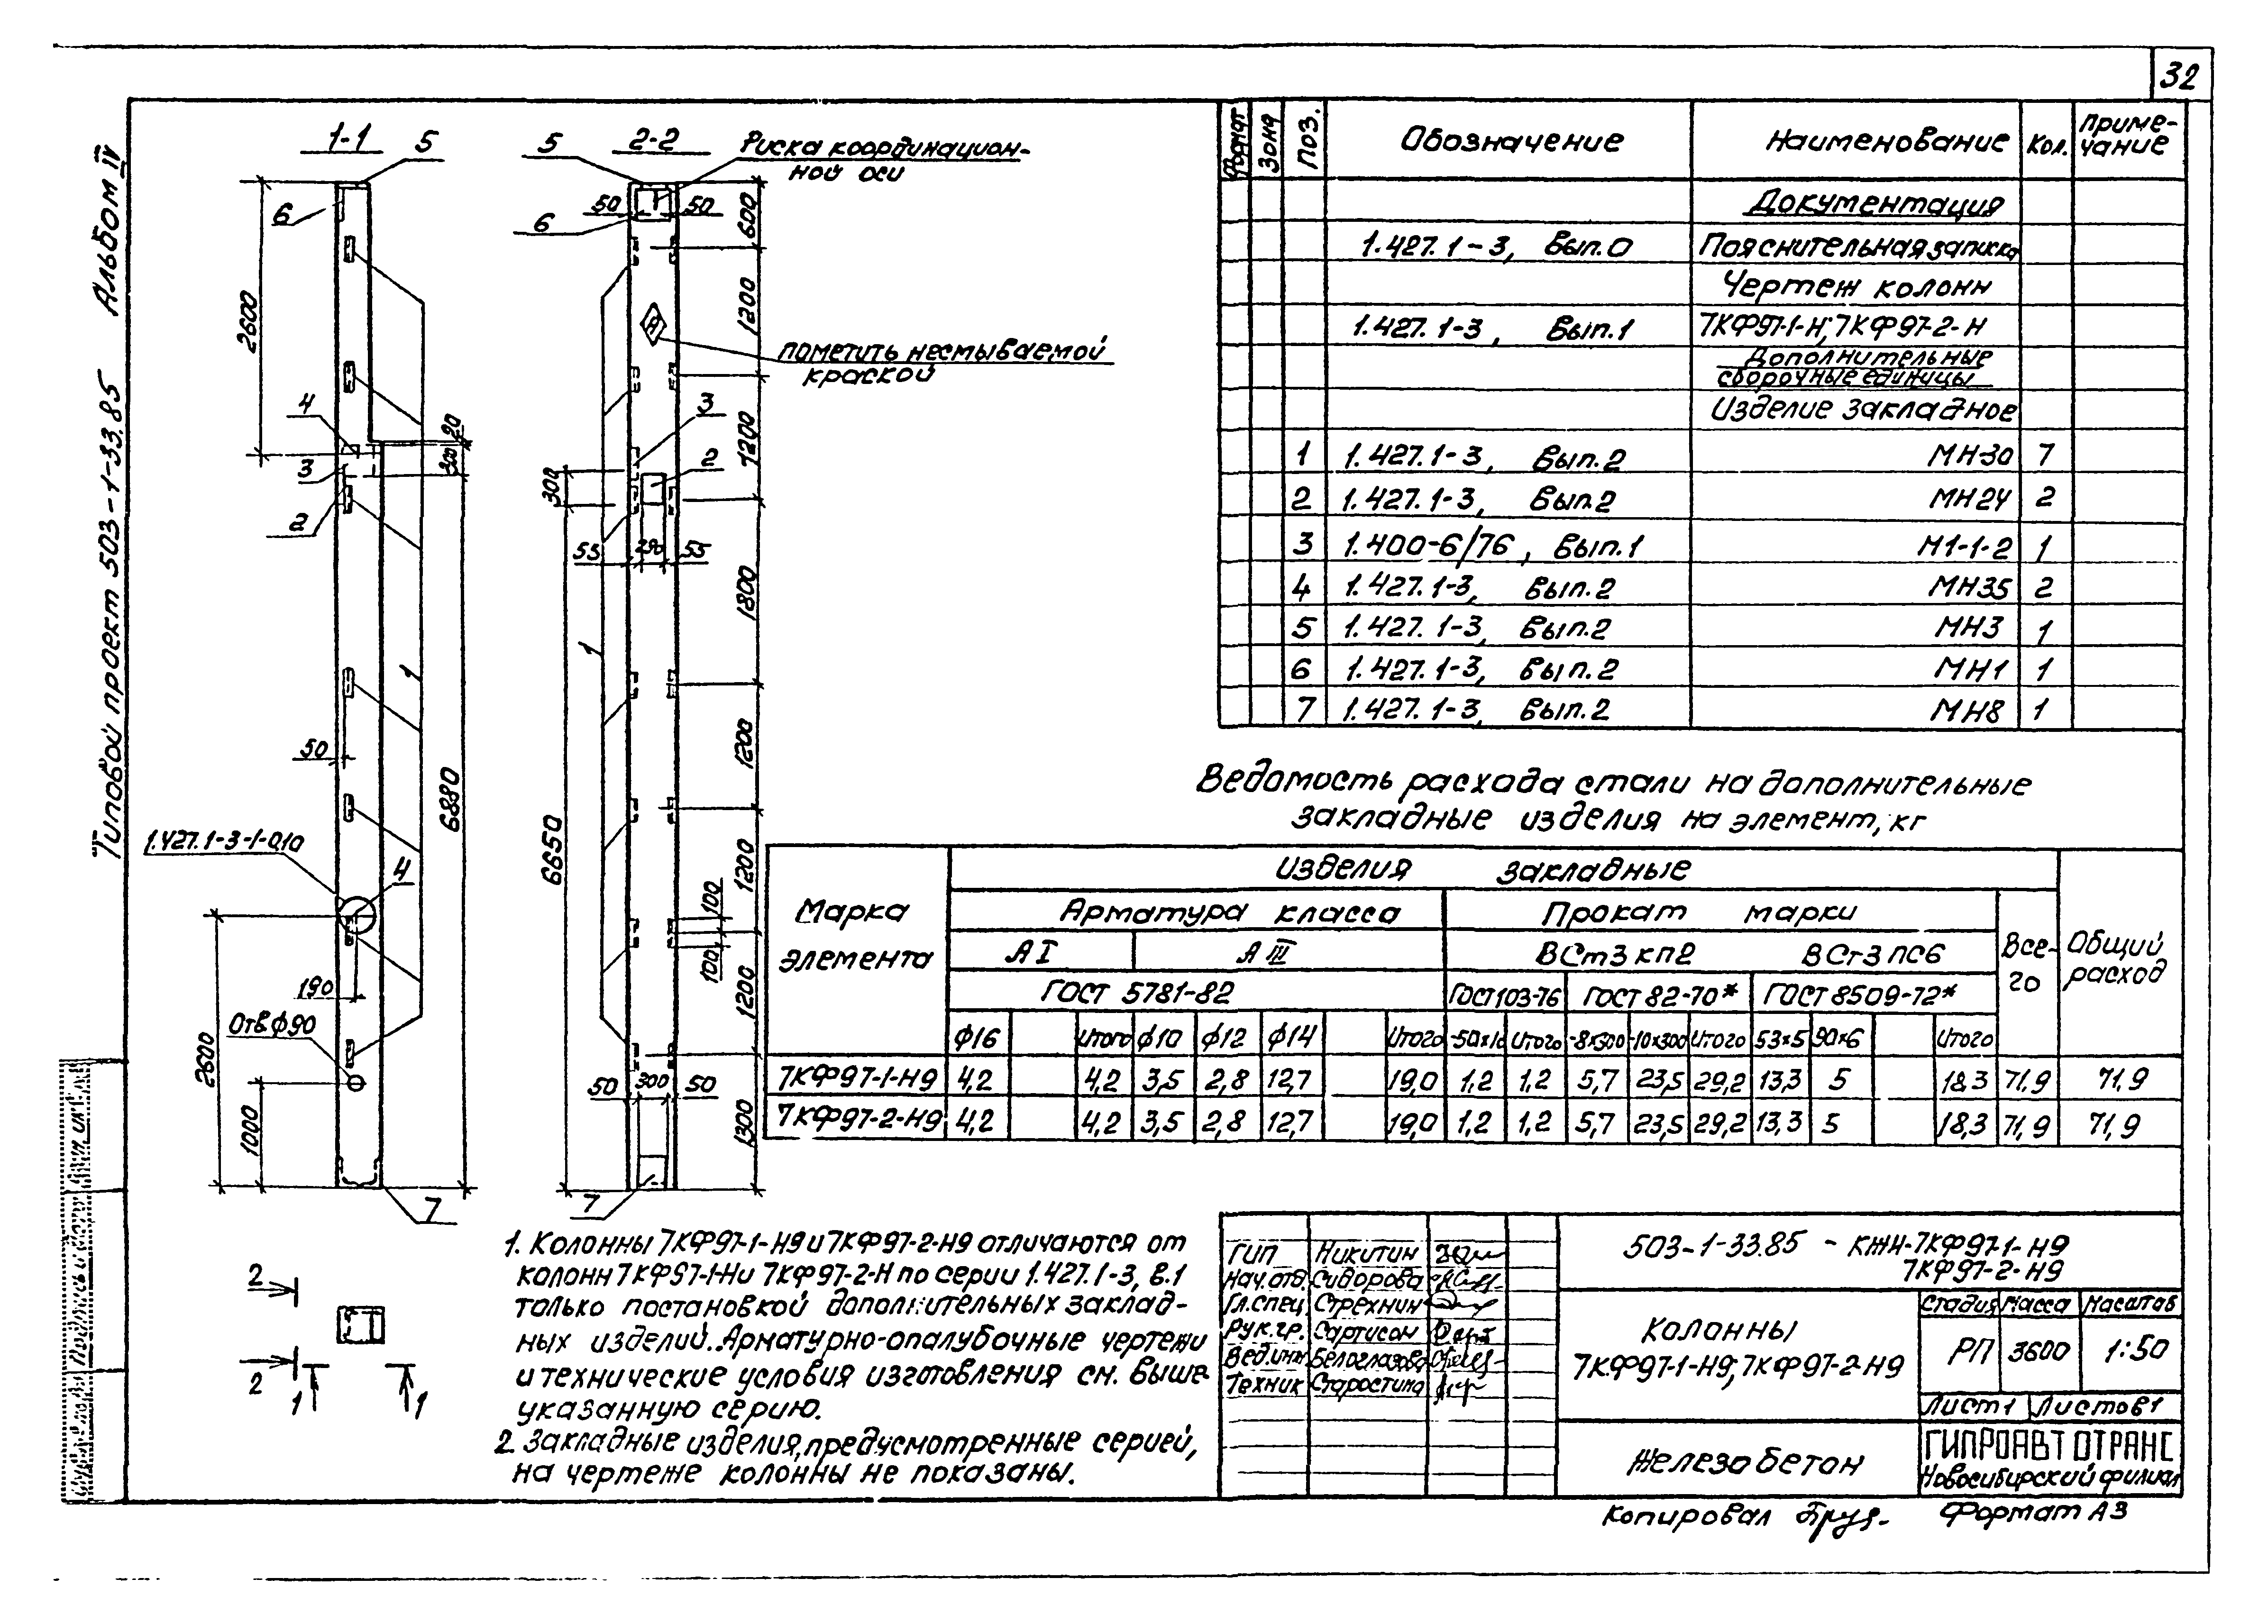 32
Типовой проект 503-1-33.85 Альбом IV
1-1
5
6
2600
4
3
2
20
300
1
50
6880
1.427.1-3-1-0.10
4
190
Отв. ф90
2600
1000
7
5
2-2
Риска координацион-
ной оси
50
50
6
600
1200
пометить несмываемой
краской
3
2
1200
300
55
290
55
1800
1
1200
6650
1200
100
100
1200
50
300
50
1300
7
2
2
1
1
Формат
Зона
Поз.
Обозначение
Наименование
Кол.
Приме-
чание
Документация
1.427.1-3, Вып.0 Пояснительная записка
Чертеж колонн
1.427.1-3, Вып.1 7КФ97-1-Н; 7КФ97-2-Н
Дополнительные
сборочные единицы
Изделие закладное
1 1.427.1-3, Вып.2 МН30 7
2 1.427.1-3, Вып.2 МН24 2
3 1.400-6/76, Вып.1 М1-1-2 1
4 1.427.1-3, Вып.2 МН35 2
5 1.427.1-3, Вып.2 МН3 1
6 1.427.1-3, Вып.2 МН1 1
7 1.427.1-3, Вып.2 МН8 1
Ведомость расхода стали на дополнительные
закладные изделия на элемент, кг
Марка
элемента
Изделия закладные
Арматура класса
Прокат марки
Все-
го
Общий
расход
АI
АIII
ВСт3кп2
ВСт3пс6
ГОСТ 5781-82
ГОСТ103-76
ГОСТ 82-70*
ГОСТ 8509-72*
ф16 Итого ф10 ф12 ф14 Итого -50х10 Итого -8х300 -10х300 Итого 53х5 90х6 Итого
7КФ97-1-Н9 4,2 4,2 3,5 2,8 12,7 19,0 1,2 1,2 5,7 23,5 29,2 13,3 5 18,3 71,9 71,9
7КФ97-2-Н9 4,2 4,2 3,5 2,8 12,7 19,0 1,2 1,2 5,7 23,5 29,2 13,3 5 18,3 71,9 71,9
1. Колонны 7КФ97-1-Н9 и 7КФ97-2-Н9 отличаются от
колонн 7КФ97-1-Н и 7КФ97-2-Н по серии 1.427.1-3, в.1
только постановкой дополнительных заклад-
ных изделий. Арматурно-опалубочные чертежи
и технические условия изготовления см. выше-
указанную серию.
2 Закладные изделия, предусмотренные серией,
на чертеже колонны не показаны.
ГИП Никитин
Нач. отд. Сиворова
Гл. спец. Стрехнин
Рук. гр. Сартисон
Вед. инж. Белоглазова
Техник Старостина
503-1-33.85 - КЖИ-7КФ97-1-Н9
7КФ97-2-Н9
Колонны
7КФ97-1-Н9; 7КФ97-2-Н9
Стадия Масса Масштаб
РП 3600 1:50
Лист 1 Листов 1
Железобетон
ГИПРОАВТОТРАНС
Новосибирский филиал
Копировал
Формат А3